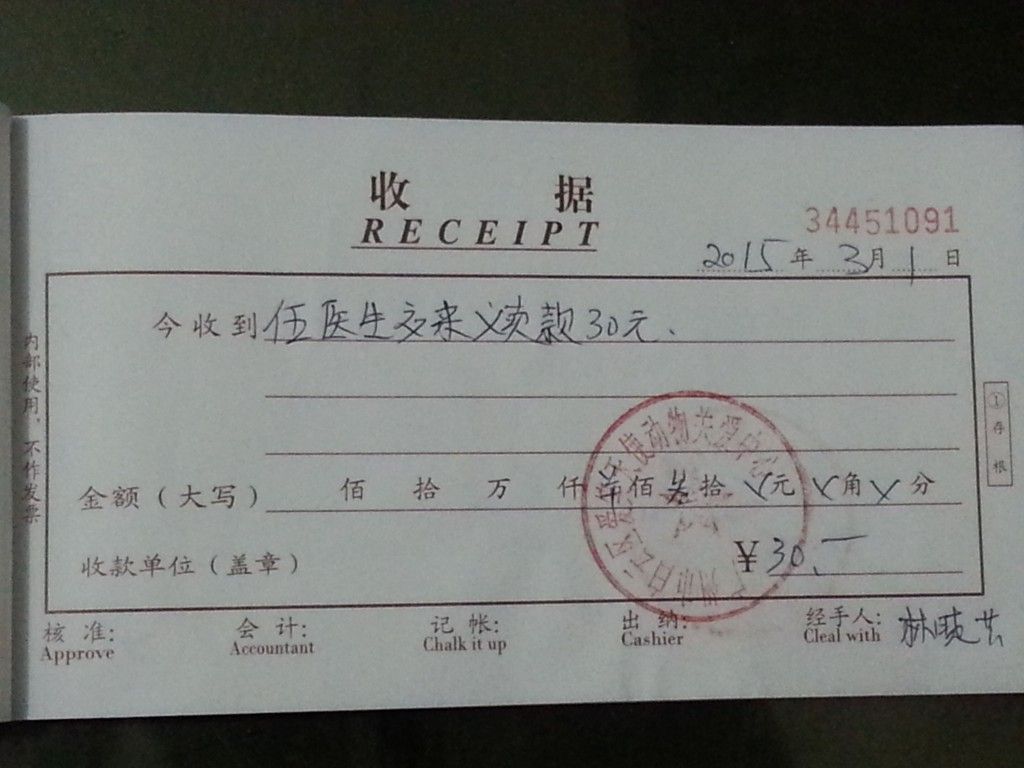 收 据
RECEIPT
34451091
2015年3月1日
今收到伍医生交来义卖款30元、
金额(大写) 佰 拾 万 仟 佰 叁拾 元 角 分
收款单位(盖章) ¥30.—
核 准: 会 计: 记 帐: 出 纳: 经手人:
Approve Accountant Chalk it up Cashier Cleal with
内部使用,不作发票
①存根